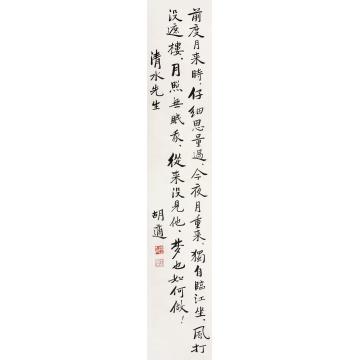 前度月来時、仔細思量過、今夜月重来、獨自臨江坐、風打
没遮樓、月照無眠我、從来没見他、夢也如何做！
清水先生
胡適